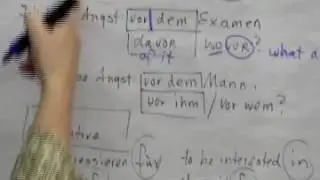 Angst vor dem Examen
davor wovor? what
of it
Angst vor dem Mann,
vor ihm / vor wem?
für to be interested in